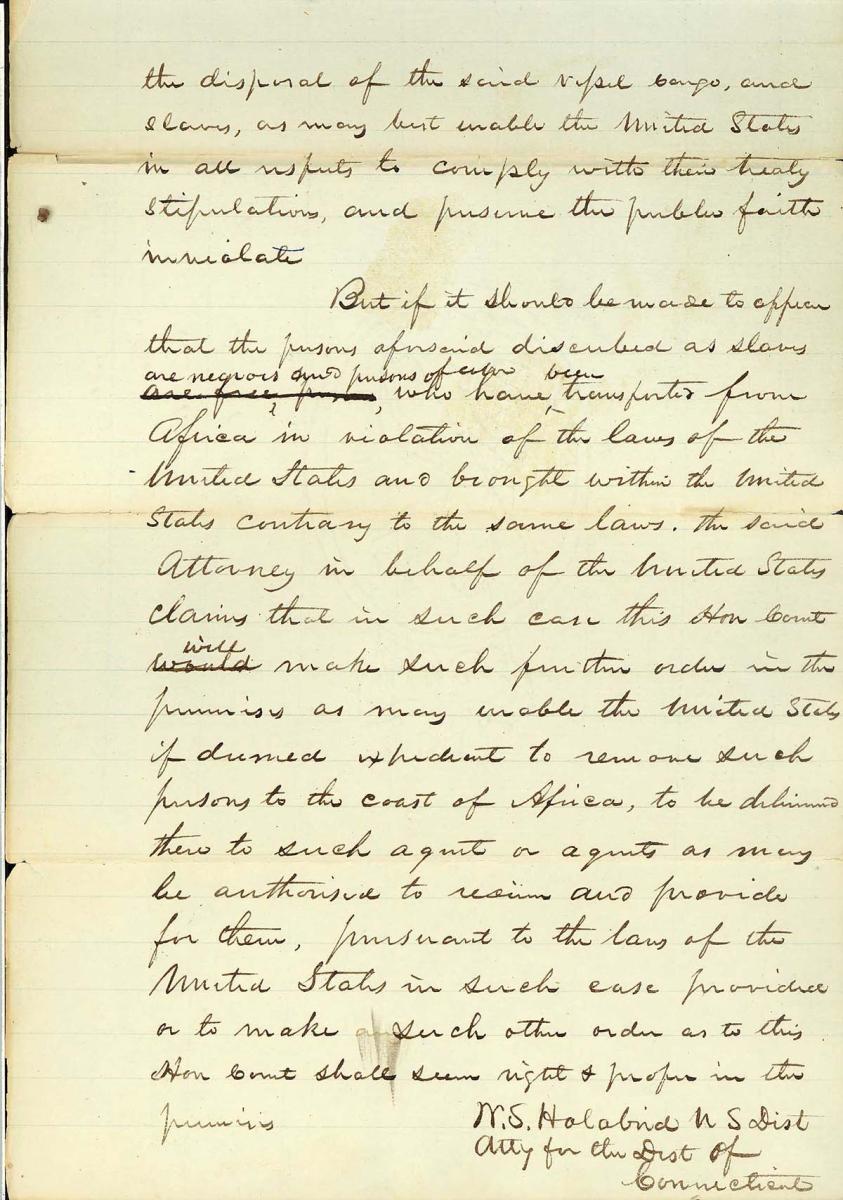 the disposal of the said vessel cargo, and
slaves, as may best enable the United States
in all respects to comply with their treaty
stipulations, and preserve the public faith
inviolate
But if it should be made to appear
that the persons aforesaid described as slaves
are negroes and persons of color been
are free, who have, transported from
Africa in violation of the laws of the
United States and brought within the United
States contrary to the same laws. the said
Attorney in behalf of the United States
claims that in such case this Hon Court
will
would make such further order in the
premises as may enable the United States
if deemed expedient to remove such
persons to the coast of Africa, to be delivered
there to such agent or agents as may
be authorised to receive and provide
for them, pursuant to the laws of the
United States in such case provided
or to make such other order as to this
Hon Court shall seem right & proper in the
premises
W. S. Holabird U S Dist
Atty for the Dist of
Connecticut